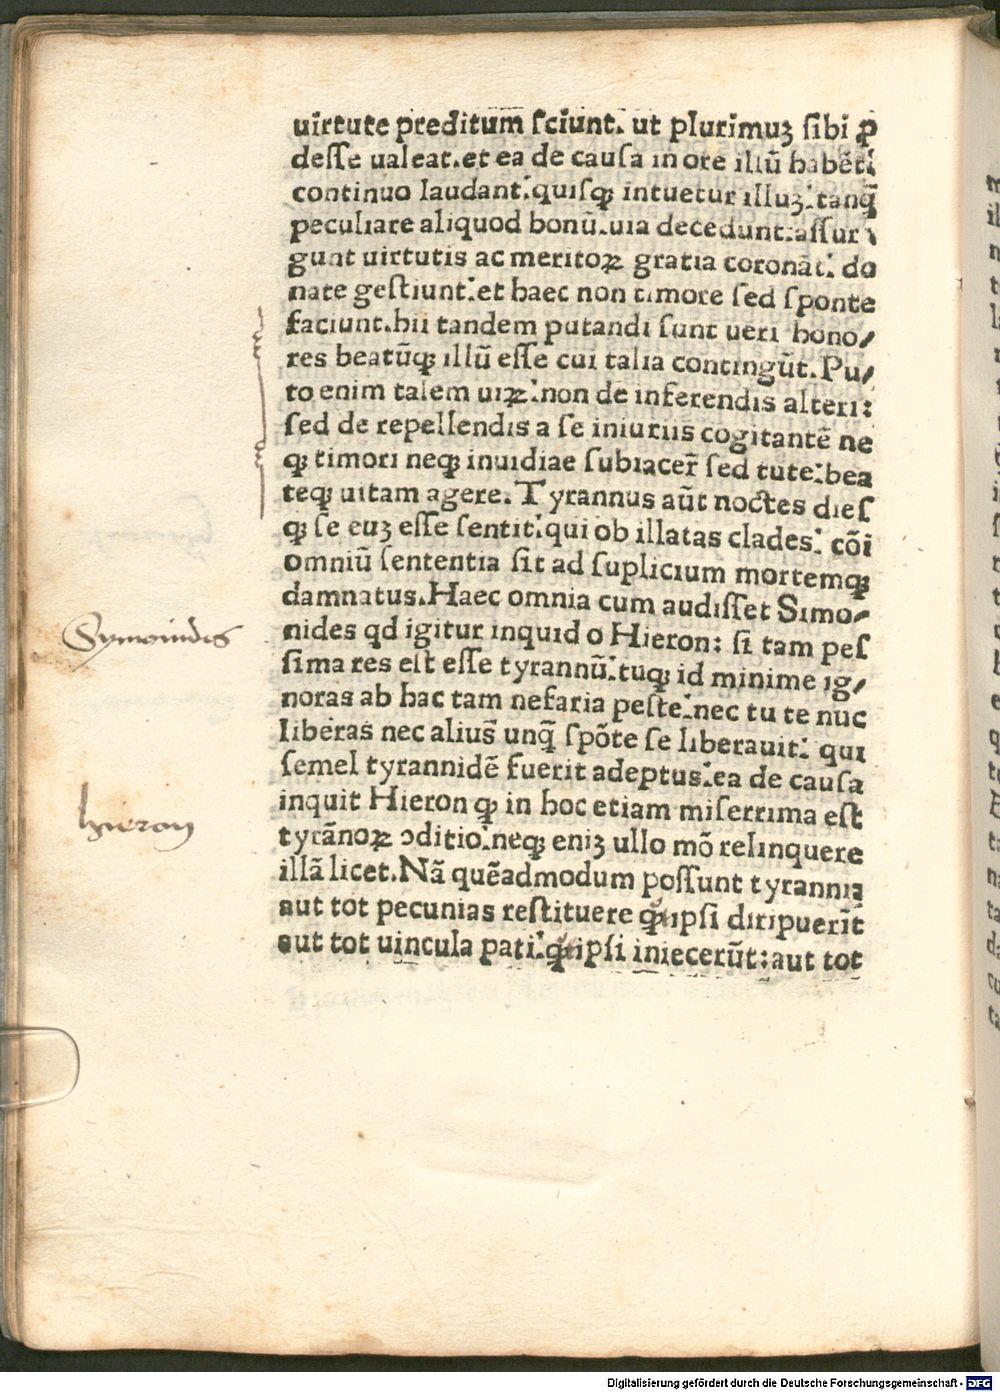 uirtute preditum sciunt. ut plurimuʒ sibi ꝓ
desse ualeat.et ea de causa in ore illū habēt:
continuo laudant:quisqꝫ intuetur illuʒ:tanqͫ
peculiare aliquod bonū.uia decedunt:assur
gunt uirtutis ac meritoꝝ gratia coronāt: do
nate gestiunt:et haec non timore sed sponte
faciunt.hii tandem putandi sunt ueri hono/
res beatūqꝫ illū esse cui talia contingūt.Pu/
to enim talem uiꝝ:non de inferendis alteri:
sed de repellendis a se iniuriis cogitantē ne
qꝫ timori neqꝫ inuidiae subiacer̄ sed tute:bea
teqꝫ uitam agere.Tyrannus aūt noctes dies
qꝫ se euʒ esse sentit:qui ob illatas clades: cōi
omniū sententia sit ad suplicium mortemqꝫ
damnatus.Haec omnia cum audisset Simo/
Symonides
nides qd igitur inquid o Hieron: si tam pes
sima res est esse tyrannū:tuqꝫ id minime ig/
noras ab hac tam nefaria peste:nec tu te nuc
liberas nec alius unqͫ spōte se liberauit: qui
semel tyrannidē fuerit adeptus:ea de causa
hieron
inquit Hieron qꝫ in hoc etiam miserrima est
tyrānoꝝ ↄditio:neqꝫ eniʒ ullo mō relinquere
illā licet.Nā quēadmodum possunt tyranni
aut tot pecunias restituere ipsi diripuerīt
aut tot uincula pati: ipsi iniecerūt:aut tot
Digitalisierung gefördert durch die Deutsche Forschungsgemeinschaft - DFG